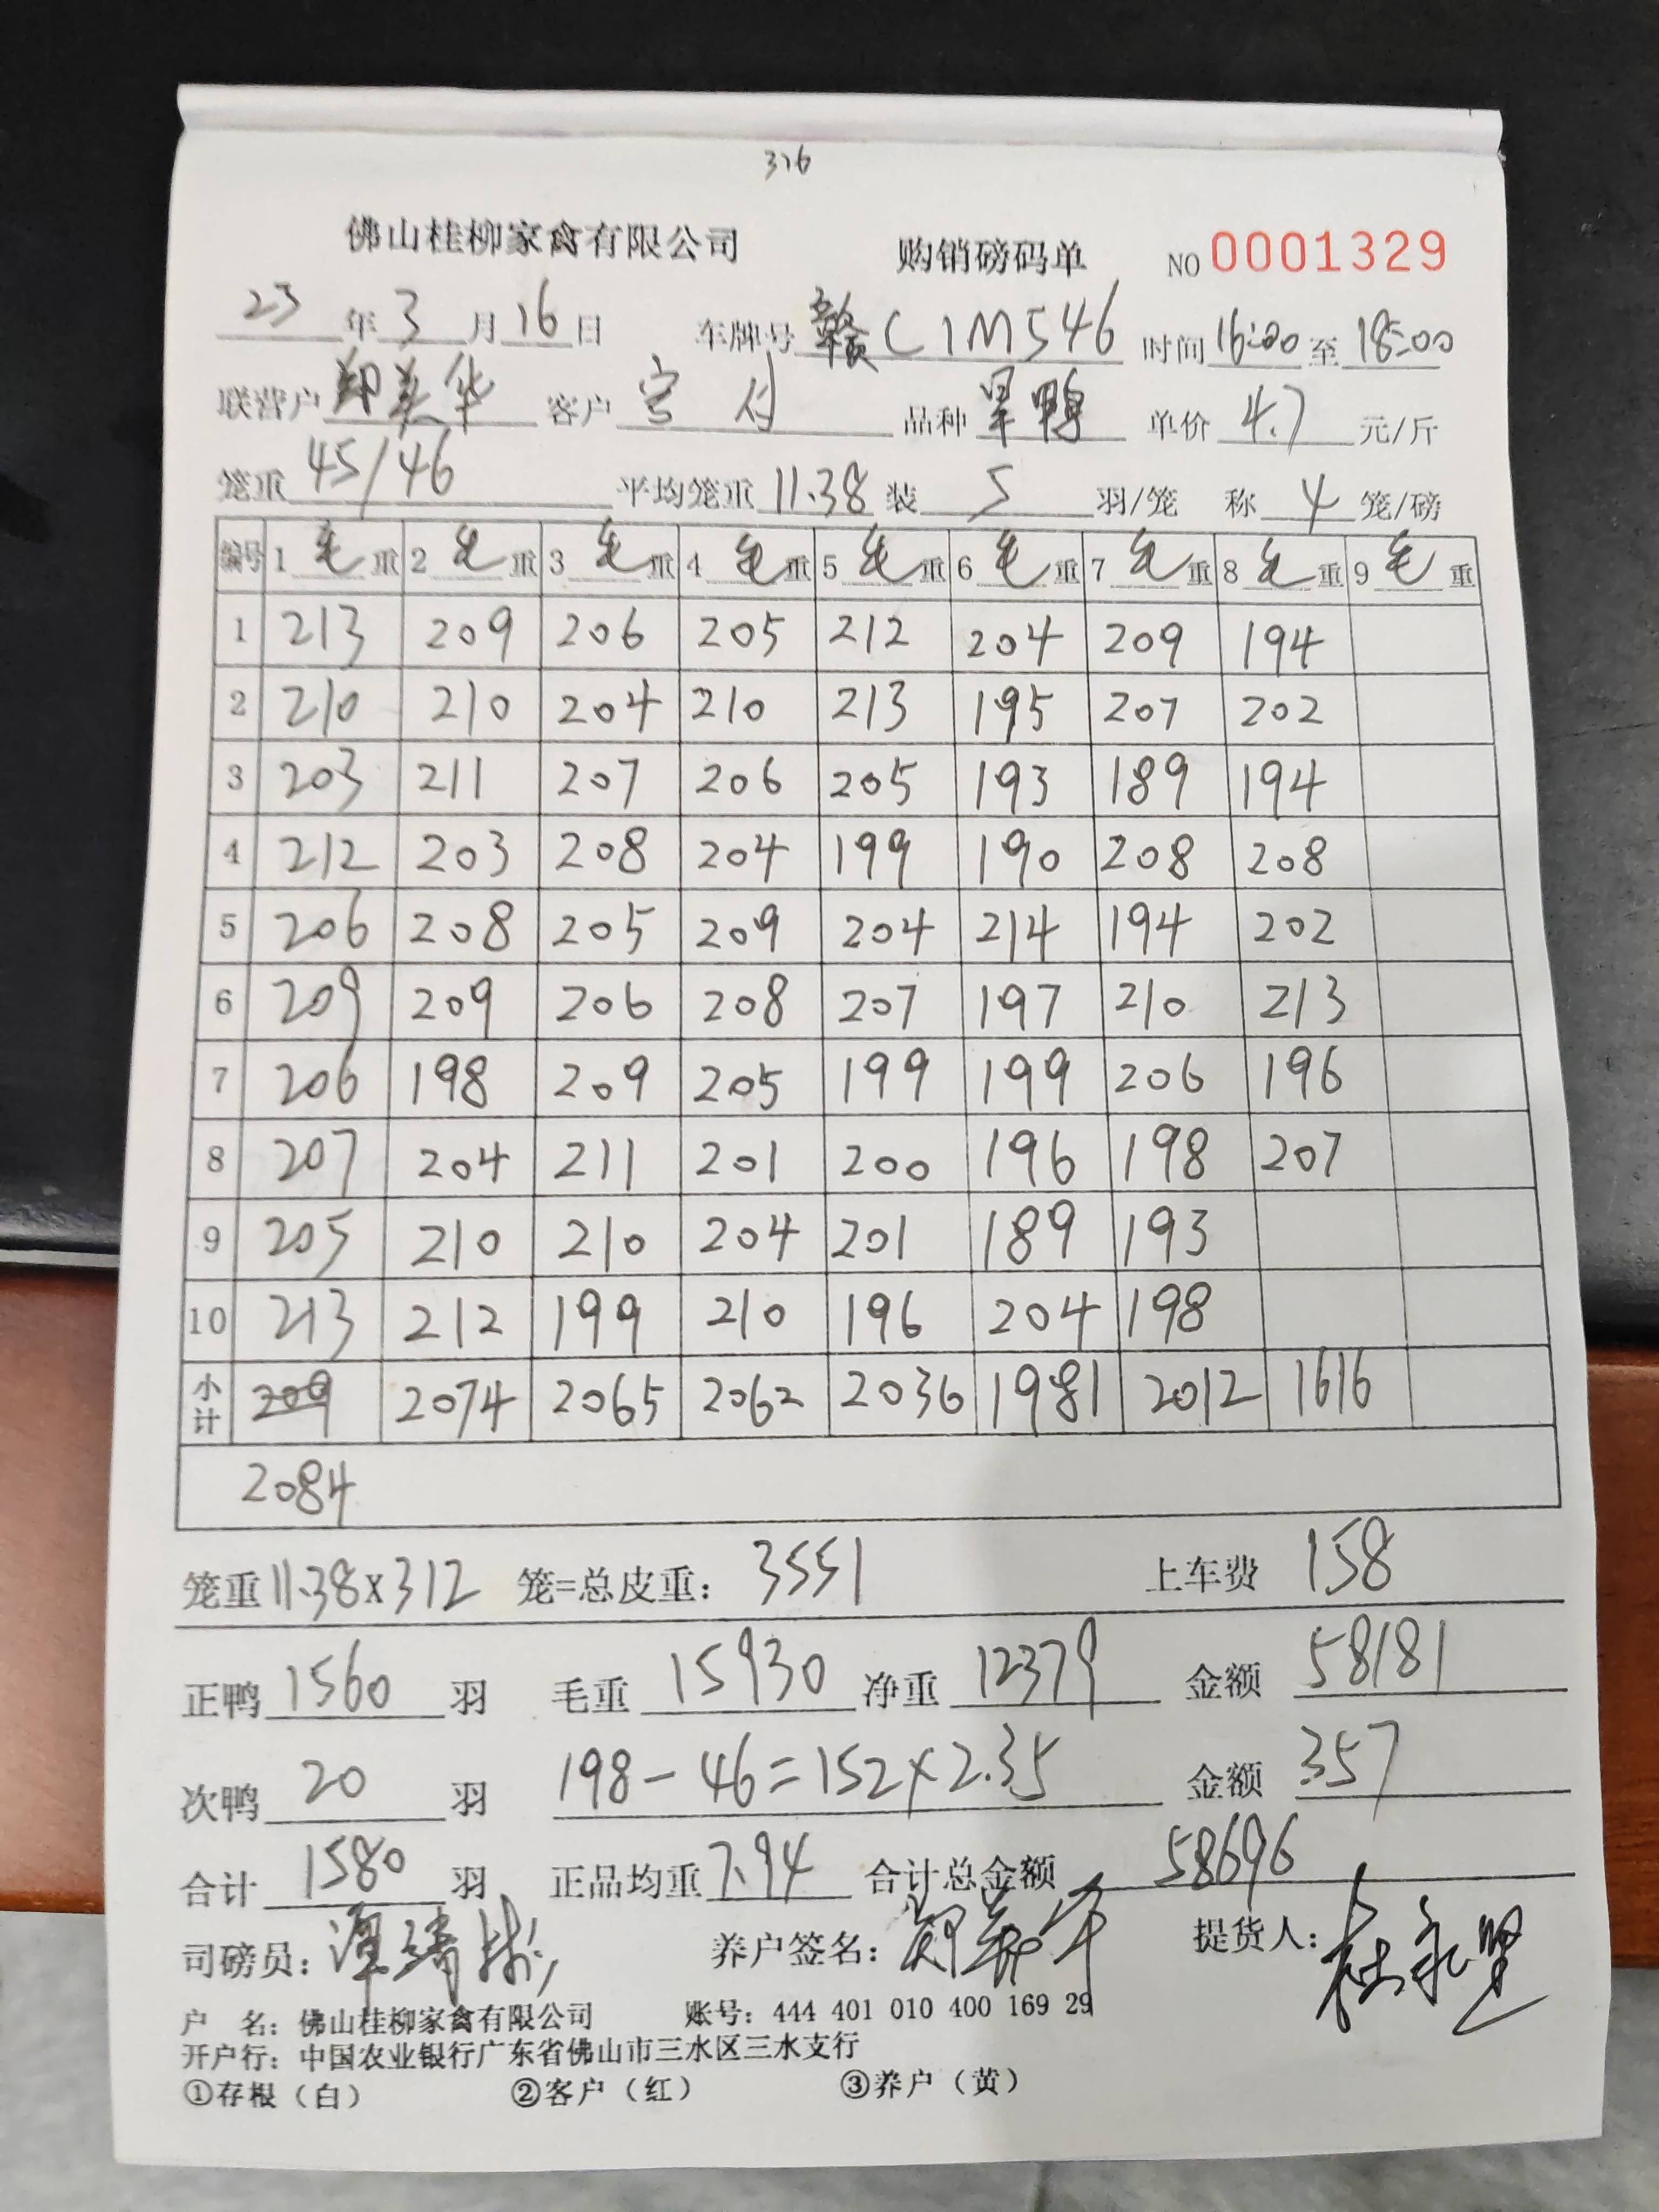 316
佛山桂柳家禽有限公司 购销磅码单 NO 0001329
23 年 3 月 16 日 车牌号 赣C1M546 时间 16:00 至 18:00
联营户 郑美华 客户 宫付 品种 旱鸭 单价 4.7 元/斤
笼重 45/46 平均笼重 11.38 装 5 羽/笼 称 4 笼/磅
编号 1 毛 重 2 毛 重 3 毛 重 4 毛 重 5 毛 重 6 毛 重 7 毛 重 8 毛 重 9 毛 重
1 213 209 206 205 212 204 209 194
2 210 210 204 210 213 195 207 202
3 203 211 207 206 205 193 189 194
4 212 203 208 204 199 190 208 208
5 206 208 205 209 204 214 194 202
6 209 209 206 208 207 197 210 213
7 206 198 209 205 199 199 206 196
8 207 204 211 201 200 196 198 207
9 205 210 210 204 201 189 193
10 213 212 199 210 196 204 198
小计 209 2074 2065 2062 2036 1981 2012 1616
2084
笼重 11.38x312 笼=总皮重: 3551 上车费 158
正鸭 1560 羽 毛重 15930 净重 12379 金额 58181
次鸭 20 羽 198-46=152x2.35 金额 357
合计 1580 羽 正品均重 7.94 合计总金额 58696
司磅员: 养户签名: 郑美华 提货人: 杜永坚
户 名: 佛山桂柳家禽有限公司 账号: 444 401 010 400 169 29
开户行: 中国农业银行广东省佛山市三水区三水支行
①存根（白） ②客户（红） ③养户（黄）